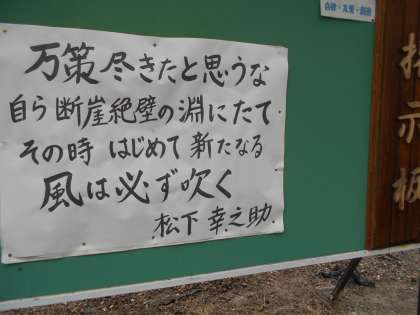 万策尽きたと思うな
自ら断崖絶壁の淵にたて
その時 はじめて 新たなる
風は必ず吹く
松下 幸之助
掲示板